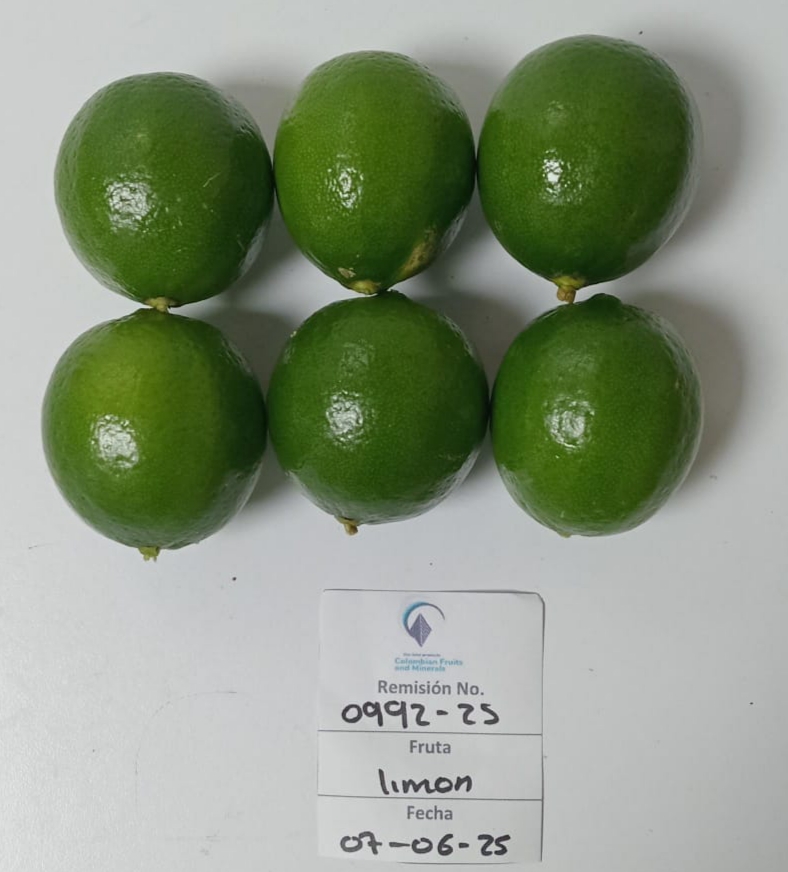 Colombian Fruits
and Minerals
Remisión No.
0992-25
Fruta
limon
Fecha
07-06-25